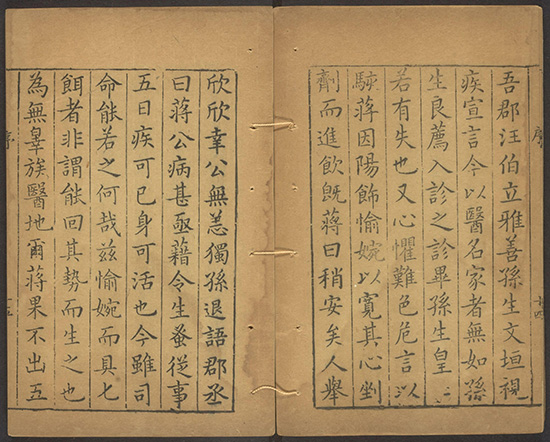 序
十四
吾郡汪伯立雅善孫生文垣視
疾宣言今以醫名家者無如孫
生良薦入診之診畢孫生皇〻
若有失也又心懼難色危言以
駴蔣因陽飾愉婉以寬其心剉
劑而進飲既蔣曰稍安矣人舉
欣欣幸公無恙獨孫退語郡丞
曰蔣公病甚亟藉令生蚤從事
五日疾可已身可活也今雖司
命能若之何哉茲愉婉而具七
餌者非謂能回其勢而生之也
為無辠族醫地爾蔣果不出五
序